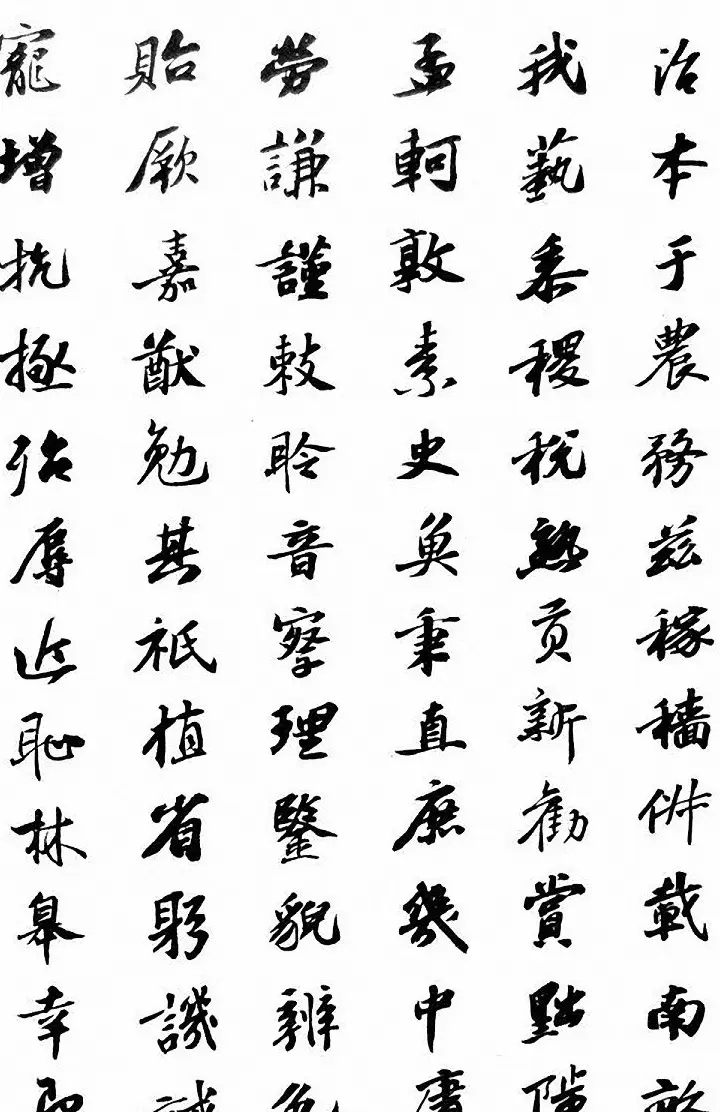 治本于農務茲稼穡俶載南畝
我藝黍稷稅熟貢新勸賞黜陟
孟軻敦素史魚秉直庶幾中庸
勞謙謹敕聆音察理鑒貌辨色
貽厥嘉猷勉其祗植省躬譏誡
寵增抗極殆辱近恥林皋幸即